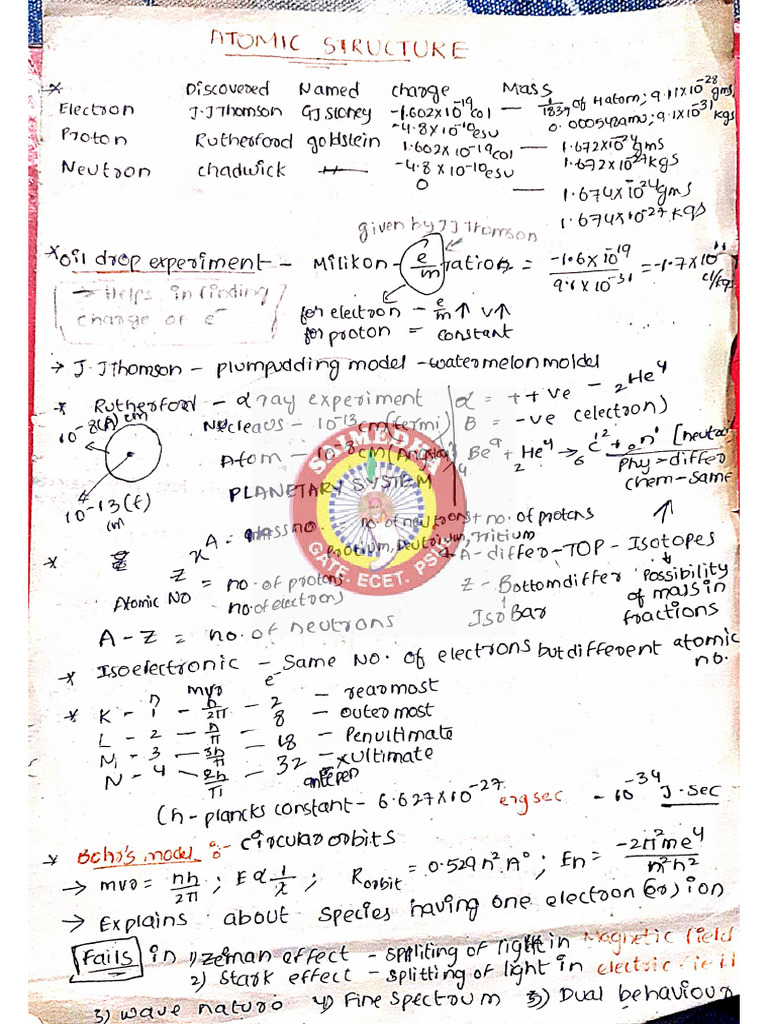 ATOMIC STRUCTURE
* Discovered Named charge Mass
Electron J.JThomson GJ Stoney -1.602×10^-19 col — 1/1837 of Hatom; 9.11×10^-28 gms
-4.8×10^-10 esu 0.000548amu; 9.1×10^-31 kgs
Proton Rutherford goldstein 1.602×10^-19 col — 1.672×10^-24 gms
-4.8×10^-10 esu 1.672×10^-27 kgs
Neutron chadwick — 0 — 1.674×10^-24 gms
1.674×10^-27 kgs
given by JJ Thomson
* oil drop experiment - Milikon - e/m ration = -1.6×10^-19 / 9.1×10^-31 = -1.7×10^11 cl/kgs
→ Helps in finding
charge of e^-
for electron - e/m ↑ v↑
for proton = constant
→ J.JThomson - plumpudding model - watermelon moldel
* Rutherford - α ray experiment α = ++ve - 2He^4
10^-8(A) cm Nucleaus - 10^-13 cm (fermi) B = -ve (electron)
Atom - 10^-8 cm (Angstrom) 4Be^9 + 2He^4 → 6C^12 + 0n^1 [neutron
10^-13 (f) cm
PLANETARY SYSTEM
Phy > differ
chem - same
* Z X A = mass no. no. of neutrons + no. of protons
protium, Deutrium, Tritium
A - differ - TOP - Isotopes
Z = no. of protons
Atomic No no. of electrons
Z - Bottom differ
Isobar
Possibility
of mass in
fractions
A - Z = no. of neutrons
* Isoelectronic - same No. of electrons but different atomic
no.
n mvr e^-
* K - 1 - h/2π - 2 - rearmost
L - 2 - h/π - 8 - outermost
M - 3 - 3h/2π - 18 - Penultimate
N - 4 - 2h/π - 32 - xultimate
antepen
(h - plancks constant - 6.627×10^-27 erg sec - 10^-34 J.sec
* Bohr's model :- circular orbits
→ mvr = nh/2π ; E α 1/λ ; R orbit = 0.529 n^2 A° ; En = -2π^2me^4 / n^2h^2
→ Explains about species having one electron (or) ion
Fails in 1) zeiman effect - spliting of light in Magnetic field
2) Stark effect - splitting of light in electric field
3) wave naturo 4) Fine Spectrum 5) Dual behaviour
SRIMEDHA
GATE ECET. PSU